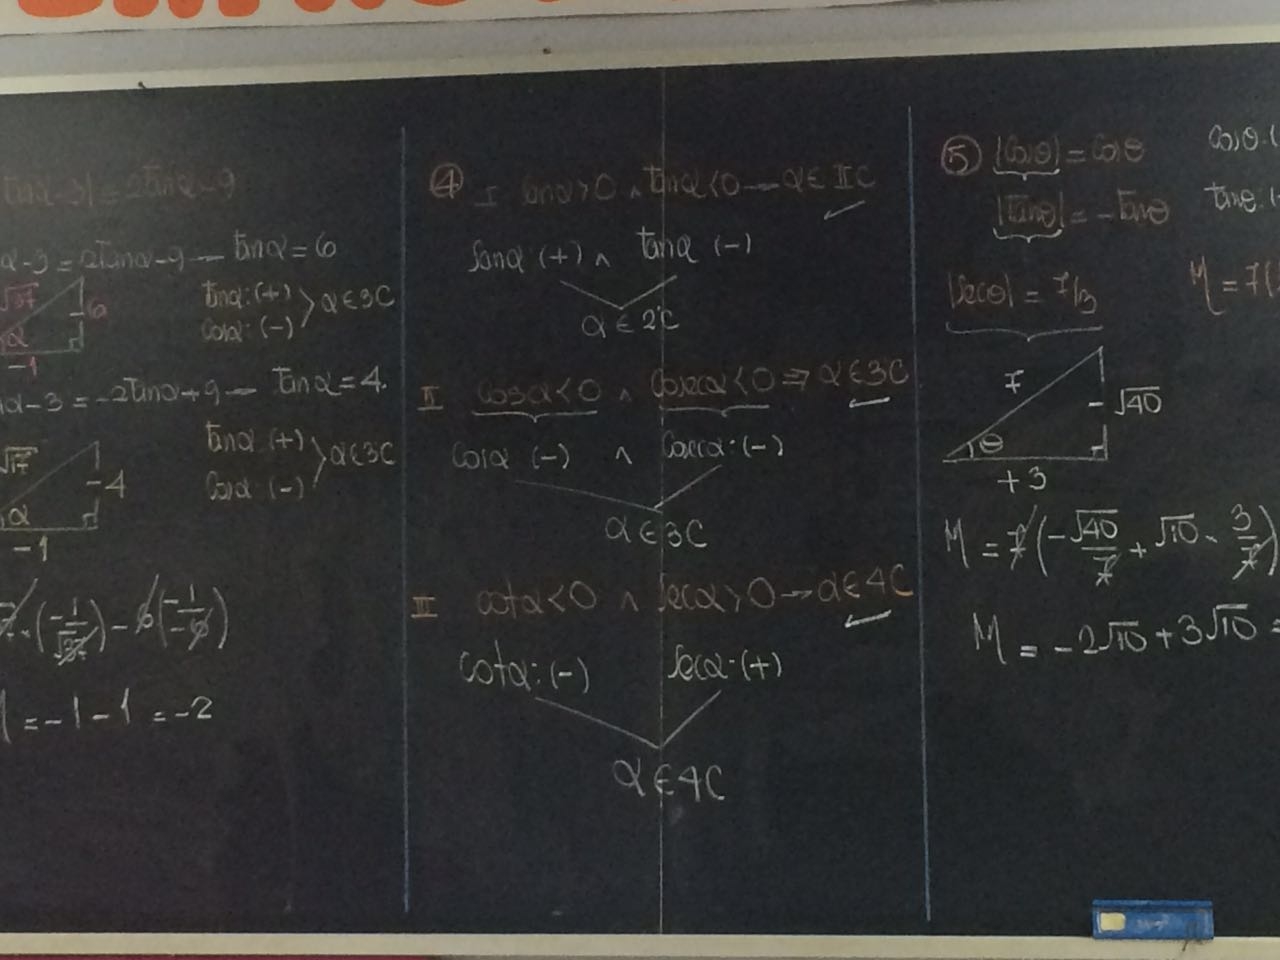 tanα-3| = 2tanα-9
α-3 = 2tanα-9 — tanα = 6
√37
-6
α
-1
tanα: (+)
cosα: (-)
α∈3C
α-3 = -2tanα+9 — tanα = 4
√17
-4
α
-1
tanα (+)
cosα: (-)
α∈3C
(-1/√37) - 6(-1/-6)
= -1-1 = -2
④ I senα>0 ∧ tanα<0 — α∈IIC
senα (+) ∧ tanα (-)
α∈2C
II cosα<0 ∧ cosecα<0 ⇒ α∈3C
cosα (-) ∧ cosecα: (-)
α∈3C
III cotα<0 ∧ secα>0 → α∈4C
cotα: (-) secα: (+)
α∈4C
⑤ |cosθ| = cosθ
cosθ: (
|tanθ| = -tanθ
tanθ: (
|secθ| = 7/3
M = 7(
7
-√40
θ
+3
M = 7(-√40/7 + √10 · 3/7)
M = -2√10 + 3√10 =